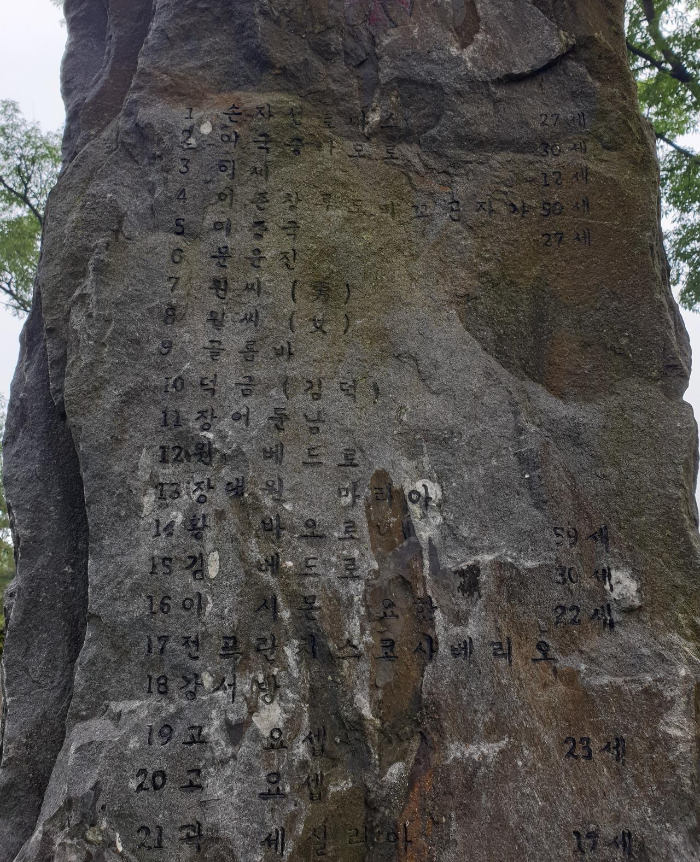 1 손 자 선 토 마 스 27 세
2 이 국 승 바 오 로 30 세
3 이 제 12 세
4 이 존 창 루 도 비 꼬 곤 자 가 50 세
5 이 종 국 27 세
6 문 운 진
7 원 씨 ( 男 )
8 원 씨 ( 女 )
9 골 롬 바
10 덕 금 ( 김 덕 )
11 장 어 둔 남
12 원 베 드 로
13 장 대 원 마 티 아
14 황 바 오 로 59 세
15 김 베 드 로 30 세
16 이 시 몬 요 한 22 세
17 전 프 란 치 스 코 사 베 리 오
18 강 서 방
19 고 요 셉 23 세
20 고 요 셉
21 곽 세 실 리 아 세